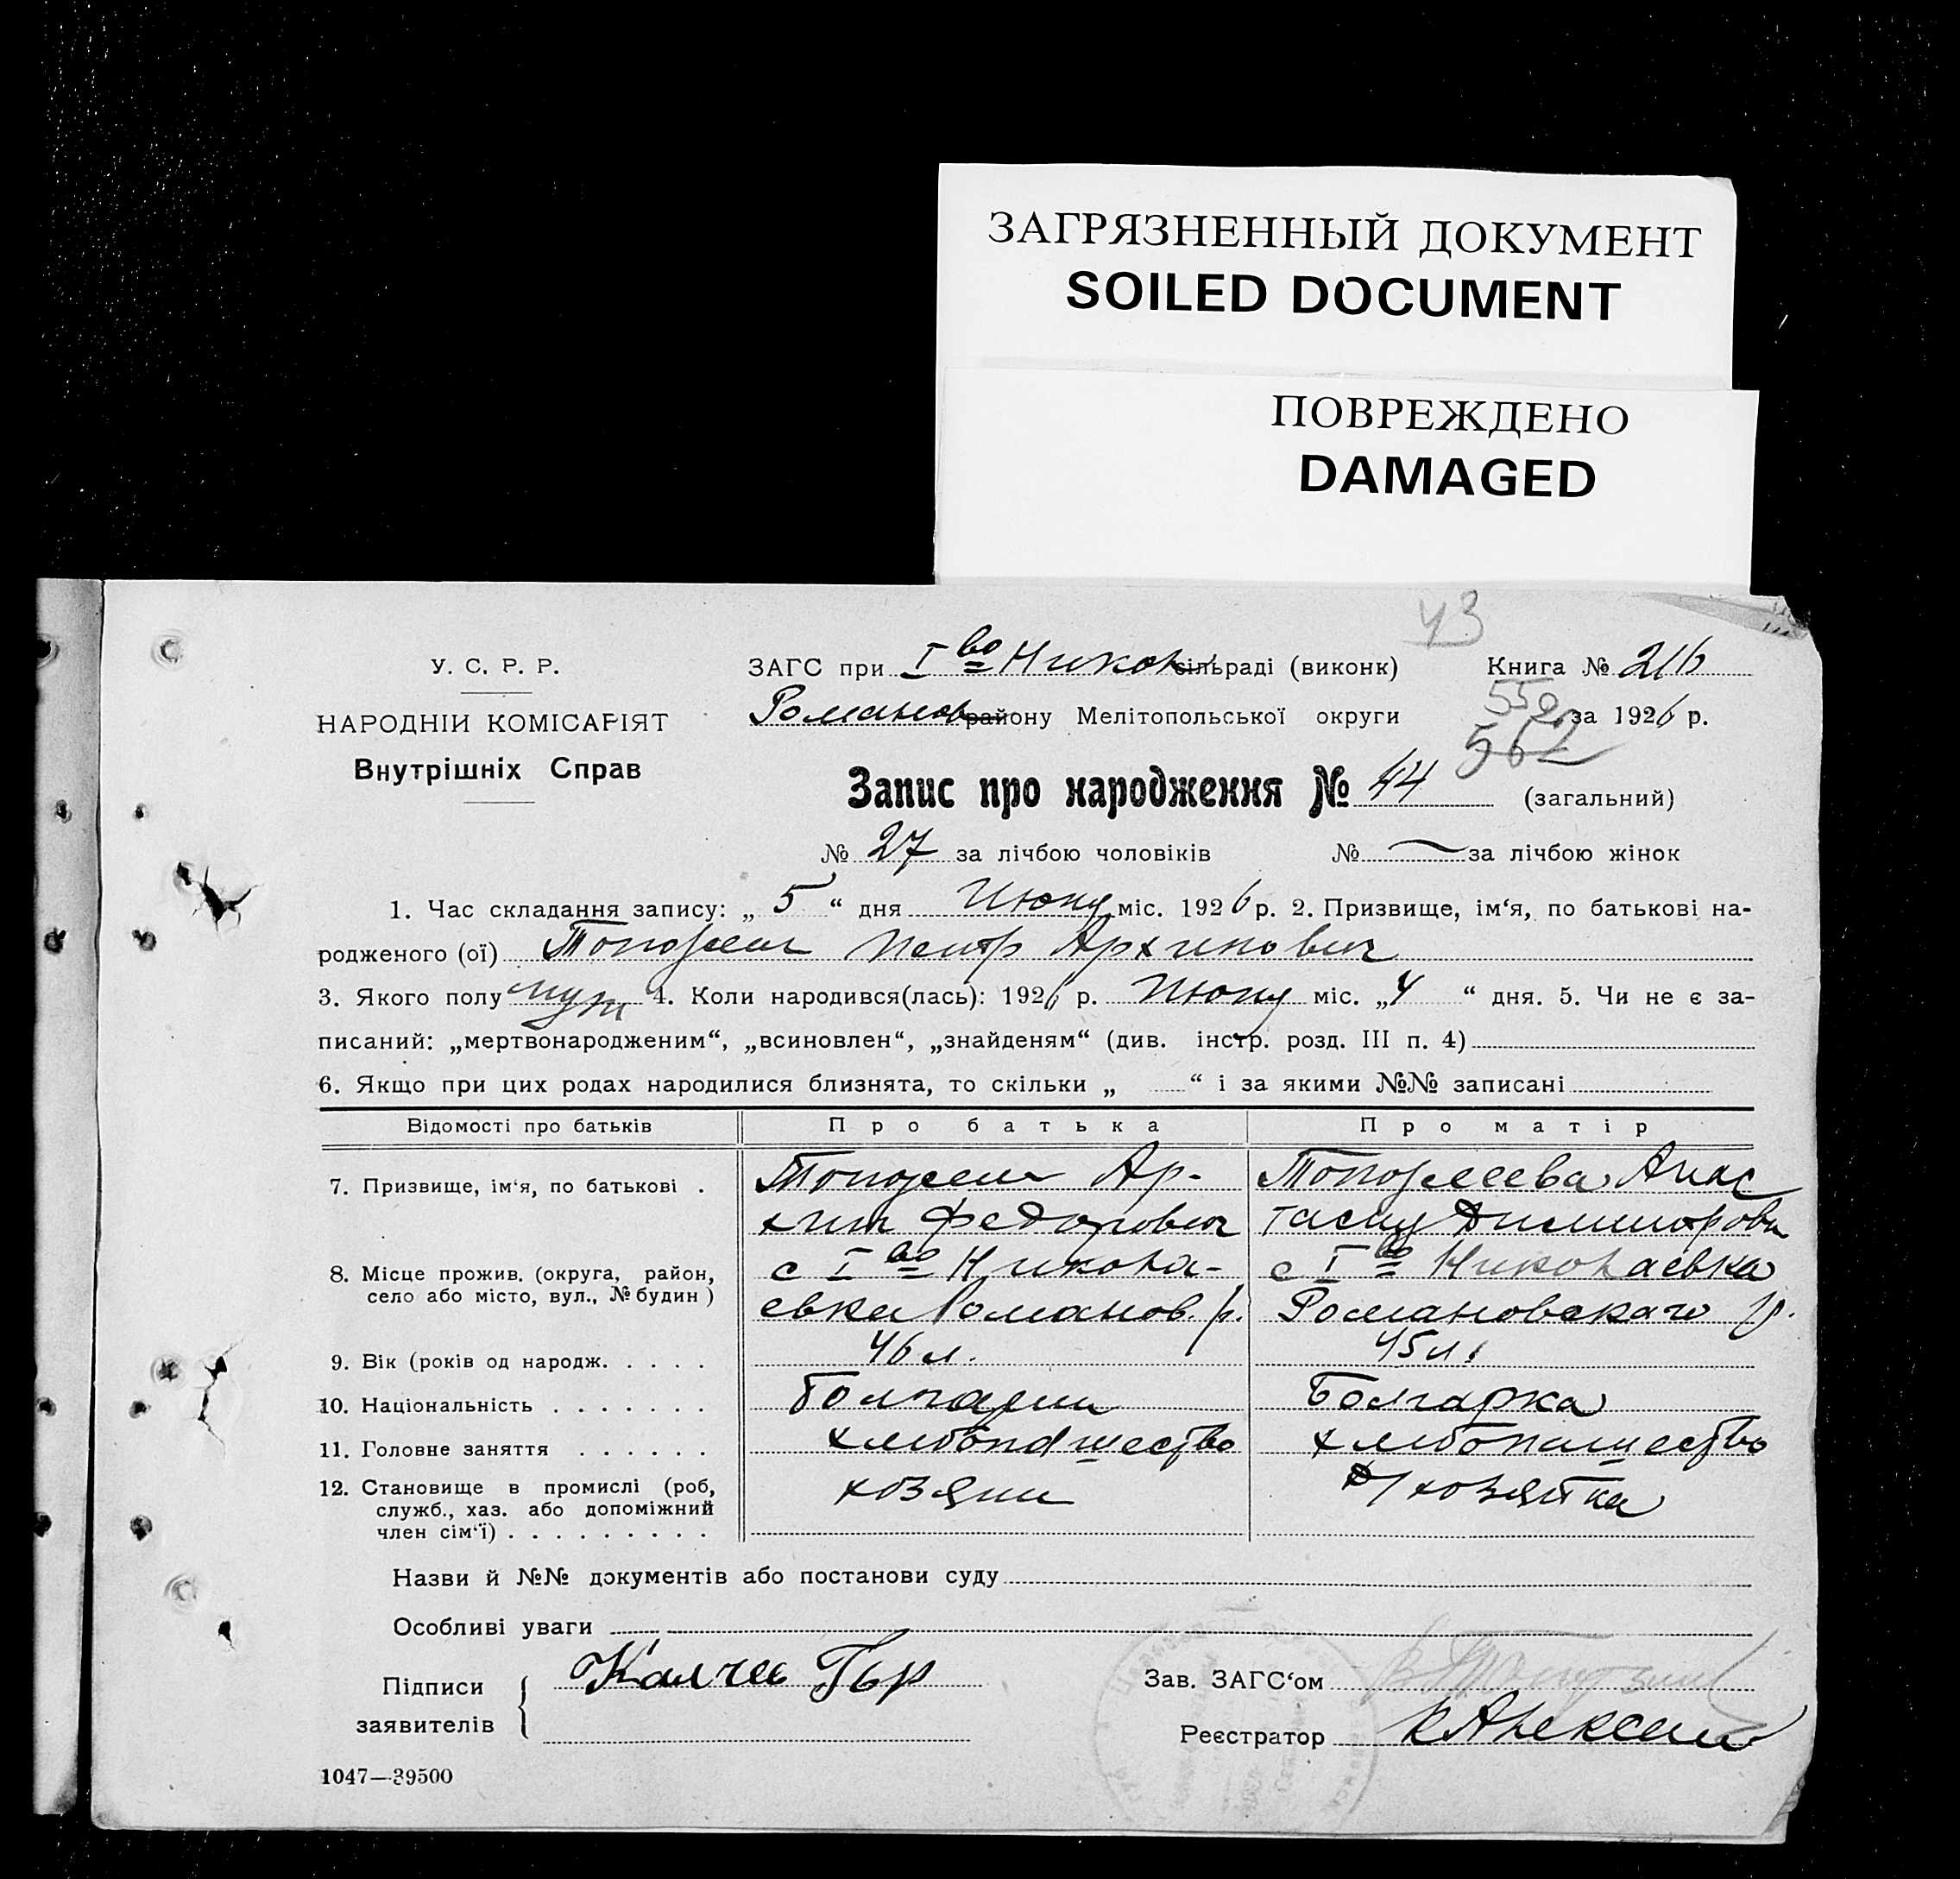 ЗАГРЯЗНЕННЫЙ ДОКУМЕНТ
SOILED DOCUMENT
ПОВРЕЖДЕНО
DAMAGED
43
У. С. Р. Р.
ЗАГС при І во Никол сільраді (виконк)
Книга № 216
НАРОДНІЙ КОМІСАРІЯТ
Романов району Мелітопольської округи
550 за 1926 р.
562
Внутрішніх Справ
Запис про народження № 44 (загальний)
№ 27 за лічбою чоловіків № — за лічбою жінок
1. Час складання запису: „ 5 “ дня Июня міс. 1926 р. 2. Призвище, ім‘я, по батькові на-
родженого (ої) Петр Архипович
3. Якого полу муж 4. Коли народився(лась): 1926 р. Июня міс. „4 “ дня. 5. Чи не є за-
писаний: „мертвонародженим“, „всиновлен“, „знайденям“ (див. інстр. розд. III п. 4)
6. Якщо при цих родах народилися близнята, то скільки „ “ і за якими №№ записані
Відомості про батьків
Про батька
Про матір
7. Призвище, ім‘я, по батькові .
Ар-
хип Федорович
Анас
8. Місце прожив. (округа, район,
село або місто, вул., № будин )
с І во Никола-
евка Романов. р.
с І во Николаевка
Романовскаго р.
9. Вік (років од народж. . . . .
46 л.
45 л.
10. Національність . . . . . . .
болгарин
Болгарка
11. Головне заняття . . . . . .
хлебопашество
хлебопашество
12. Становище в промислі (роб,
служб., хаз. або допоміжний
член сім‘ї) . . . . . . . . .
хозяин
д/хозяйка
Назви й №№ документів або постанови суду
Особливі уваги
Підписи
заявителів
Калчев
Зав. ЗАГС‘ом
Реєстратор
1047—39500